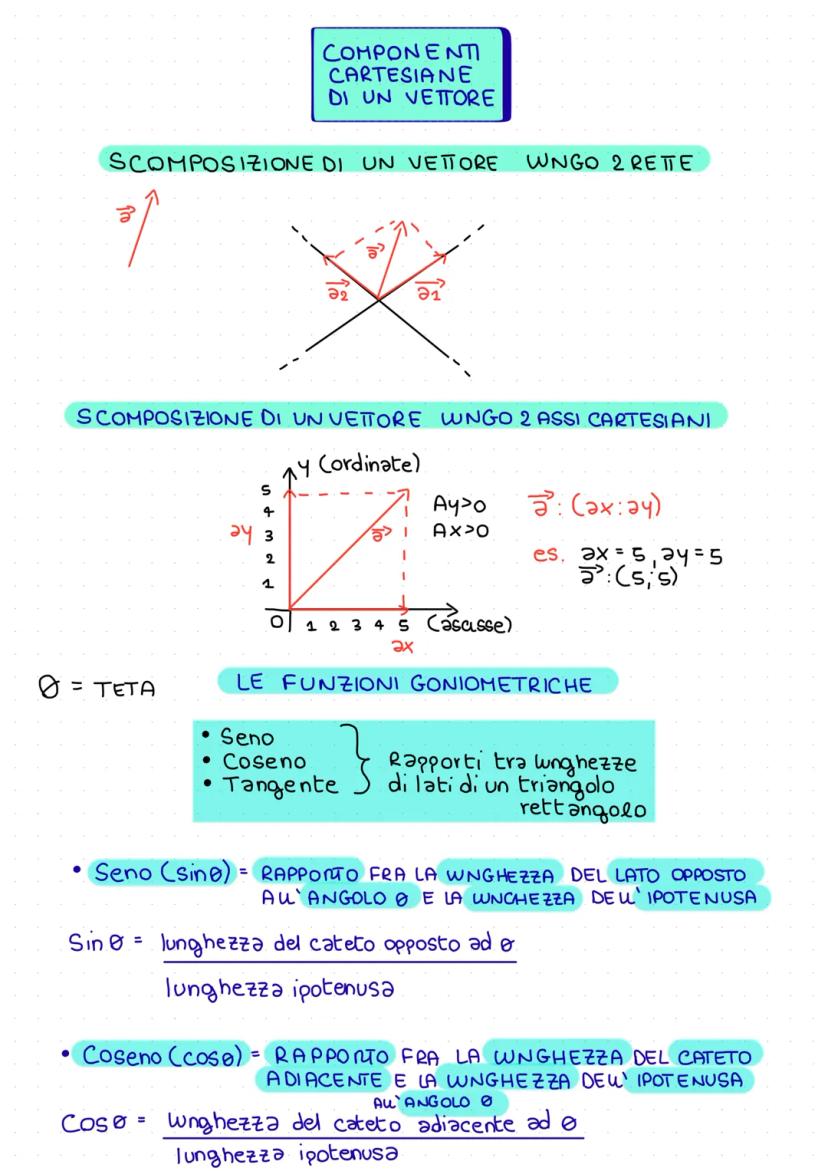 COMPONENTI
CARTESIANE
DI UN VETTORE
SCOMPOSIZIONE DI UN VETTORE LUNGO 2 RETTE
a
a
a2
a1
SCOMPOSIZIONE DI UN VETTORE LUNGO 2 ASSI CARTESIANI
y (ordinate)
5
4
3
2
1
ay
a
Ay>0
Ax>0
a: (ax:ay)
es. ax = 5, ay = 5
a: (5;5)
0 1 2 3 4 5 (ascisse)
ax
θ = TETA
LE FUNZIONI GONIOMETRICHE
• Seno
• Coseno
• Tangente
Rapporti tra lunghezze
di lati di un triangolo
rettangolo
• Seno (sinθ) = RAPPORTO FRA LA LUNGHEZZA DEL LATO OPPOSTO
ALL'ANGOLO θ E LA LUNGHEZZA DELL'IPOTENUSA
Sinθ = lunghezza del cateto opposto ad θ
lunghezza ipotenusa
• Coseno (cosθ) = RAPPORTO FRA LA LUNGHEZZA DEL CATETO
ADIACENTE E LA LUNGHEZZA DELL'IPOTENUSA
ALL'ANGOLO θ
Cosθ = lunghezza del cateto adiacente ad θ
lunghezza ipotenusa